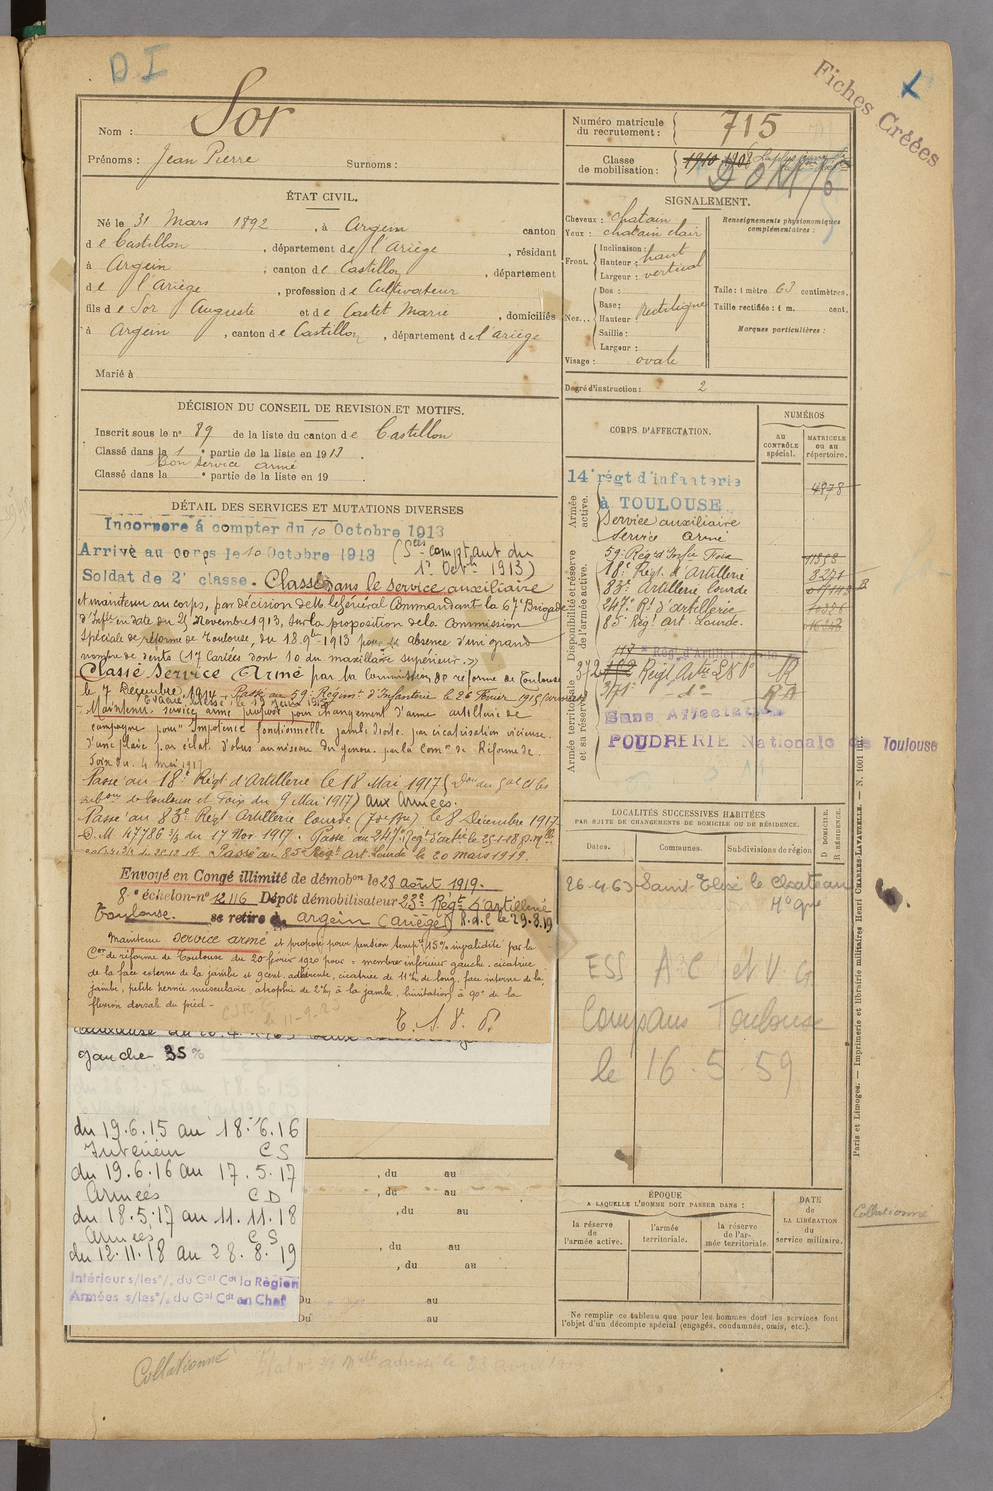 D I
Fiches Créées
Nom : Sor
Prénoms : Jean Pierre Surnoms :
Numéro matricule du recrutement : 715
Classe de mobilisation : 1910 1908
ÉTAT CIVIL.
Né le 31 Mars 1892, à Argein canton
de Castillon, département de l'Ariège, résidant
à Argein ; canton de Castillon, département
de l'Ariège, profession de Cultivateur
fils de Sor Auguste et de Castet Marie, domiciliés
à Argein, canton de Castillon, département de l'ariège
Marié à
SIGNALEMENT.
Cheveux : chatain
Yeux : chatain clair
Front. Inclinaison :
Hauteur : haut
Largeur : vertical
Nez... Dos :
Base : Rectiligne
Hauteur :
Saillie :
Largeur :
Visage : ovale
Renseignements physionomiques complémentaires :
Taille : 1 mètre 63 centimètres.
Taille rectifiée : 1 m. cent.
Marques particulières :
Degré d'instruction : 2
DÉCISION DU CONSEIL DE REVISION ET MOTIFS.
Inscrit sous le n° 89 de la liste du canton de Castillon
Classé dans la 1e partie de la liste en 1913.
Bon service armé
Classé dans la e partie de la liste en 19 .
DÉTAIL DES SERVICES ET MUTATIONS DIVERSES
Incorporé à compter du 10 Octobre 1913
Arrivé au corps le 10 Octobre 1913 (Sces comptant du
1er Octbre 1913)
Soldat de 2e classe. Classé dans le service auxiliaire
et maintenu au corps, par décision de Mr le Général Commandant la 67e Brigade
d'Infie en date du 25 Novembre 1913, sur la proposition de la Commission
spéciale de réforme de Toulouse, du 18.9bre 1913 pour absence d'un grand
nombre de dents (17 cariées dont 10 du maxillaire supérieur.»)
Classé Service Armé par la commission de réforme de Toulouse
le 7 Décembre 1914. Passé au 59e Régimt d'Infanterie le 26 Février 1915 (armées)
Evacué blessé le 19 Juin 1915
Maintenu service armé proposé pour changement d'arme artillerie de
campagne pour "Impotence fonctionnelle jambe droite par cicatrisation vicieuse
d'une plaie par éclat d'obus au niveau du genou. par la Comon de Réforme de
Foix du 4 mai 1917
Passé au 18e Régt d'Artillerie le 18 Mai 1917
de Toulouse et Foix du 9 Mai 1917) aux Armées.
Passé au 83e Régt Artillerie lourde le 8 Décembre 1917
D.M. 47786 3/3 du 17 Nov 1917. Passé au 247e Régt d'artie le 25-1-18
Passé au 85e Régt Art. Lourde le 20 mars 1919.
Envoyé en Congé illimité de démobon le 28 août 1919.
8e échelon-n° 12116 Dépôt démobilisateur 23e Régt d'Artillerie
Toulouse. se retire à argein (ariège) R.d.C le 29.8.19
Maintenu service armé et proposé pour pension tempre 15% invalidité par la
Con de réforme de Toulouse du 20 février 1920 pour : membre inférieur gauche. cicatrice
de la face externe de la jambe et adhérente, cicatrice de 11 c/m de long. face interne de la
jambe, petite hernie musculaire, atrophie de 2 c/m à la jambe, limitation à 90° de la
flexion dorsale du pied -
T. S. V. P.
gauche 35 %
du 19.6.15 au 18.6.16
Intérieur C S
du 19.6.16 au 17.5.17
Armées C D
du 18.5.17 au 11.11.18
Armées C S
du 12.11.18 au 28.8.19
Intérieur s/les °/. du Gal Cdt la Région
Armées s/les °/. du Gal Cdt en Chef
, du au
, du au
, du au
, du au
, du au
Du au
Du au
CORPS D'AFFECTATION.
NUMÉROS
AU CONTRÔLE spécial.
MATRICULE OU AU répertoire.
Armée active.
Disponibilité et réserve de l'armée active.
Armée territoriale et sa réserve.
14e régt d'infanterie
à TOULOUSE 4978
Service auxiliaire
Service armé
59e Régt d'Infie Foix
18e Régt d'Artillerie 8271
83e Artillerie lourde
247e Rt d'artillerie
85e Régt Art. Lourde.
117e Régt d'Artillerie
312 Régt Artie
341e - do - RA
Sans Affectation
POUDRERIE Nationale de Toulouse
LOCALITÉS SUCCESSIVES HABITÉES
PAR SUITE DE CHANGEMENTS DE DOMICILE OU DE RÉSIDENCE.
Dates. Communes. Subdivisions de région
D DOMICILE. R RÉSIDENCE.
26-4-63 Saint Elix le Chateau
Hte Gne
ESS A C et V G
Compans Toulouse
le 16.5.59
ÉPOQUE
A LAQUELLE L'HOMME DOIT PASSER DANS :
la réserve de l'armée active.
l'armée territoriale.
la réserve de l'armée territoriale.
DATE de LA LIBÉRATION du service militaire.
Ne remplir ce tableau que pour les hommes dont les services font
l'objet d'un décompte spécial (engagés, condamnés, omis, etc.).
Paris et Limoges. — Imprimerie et librairie militaires Henri CHARLES-LAVAUZELLE. — N. 1001 bis.
Collationné
Collationné